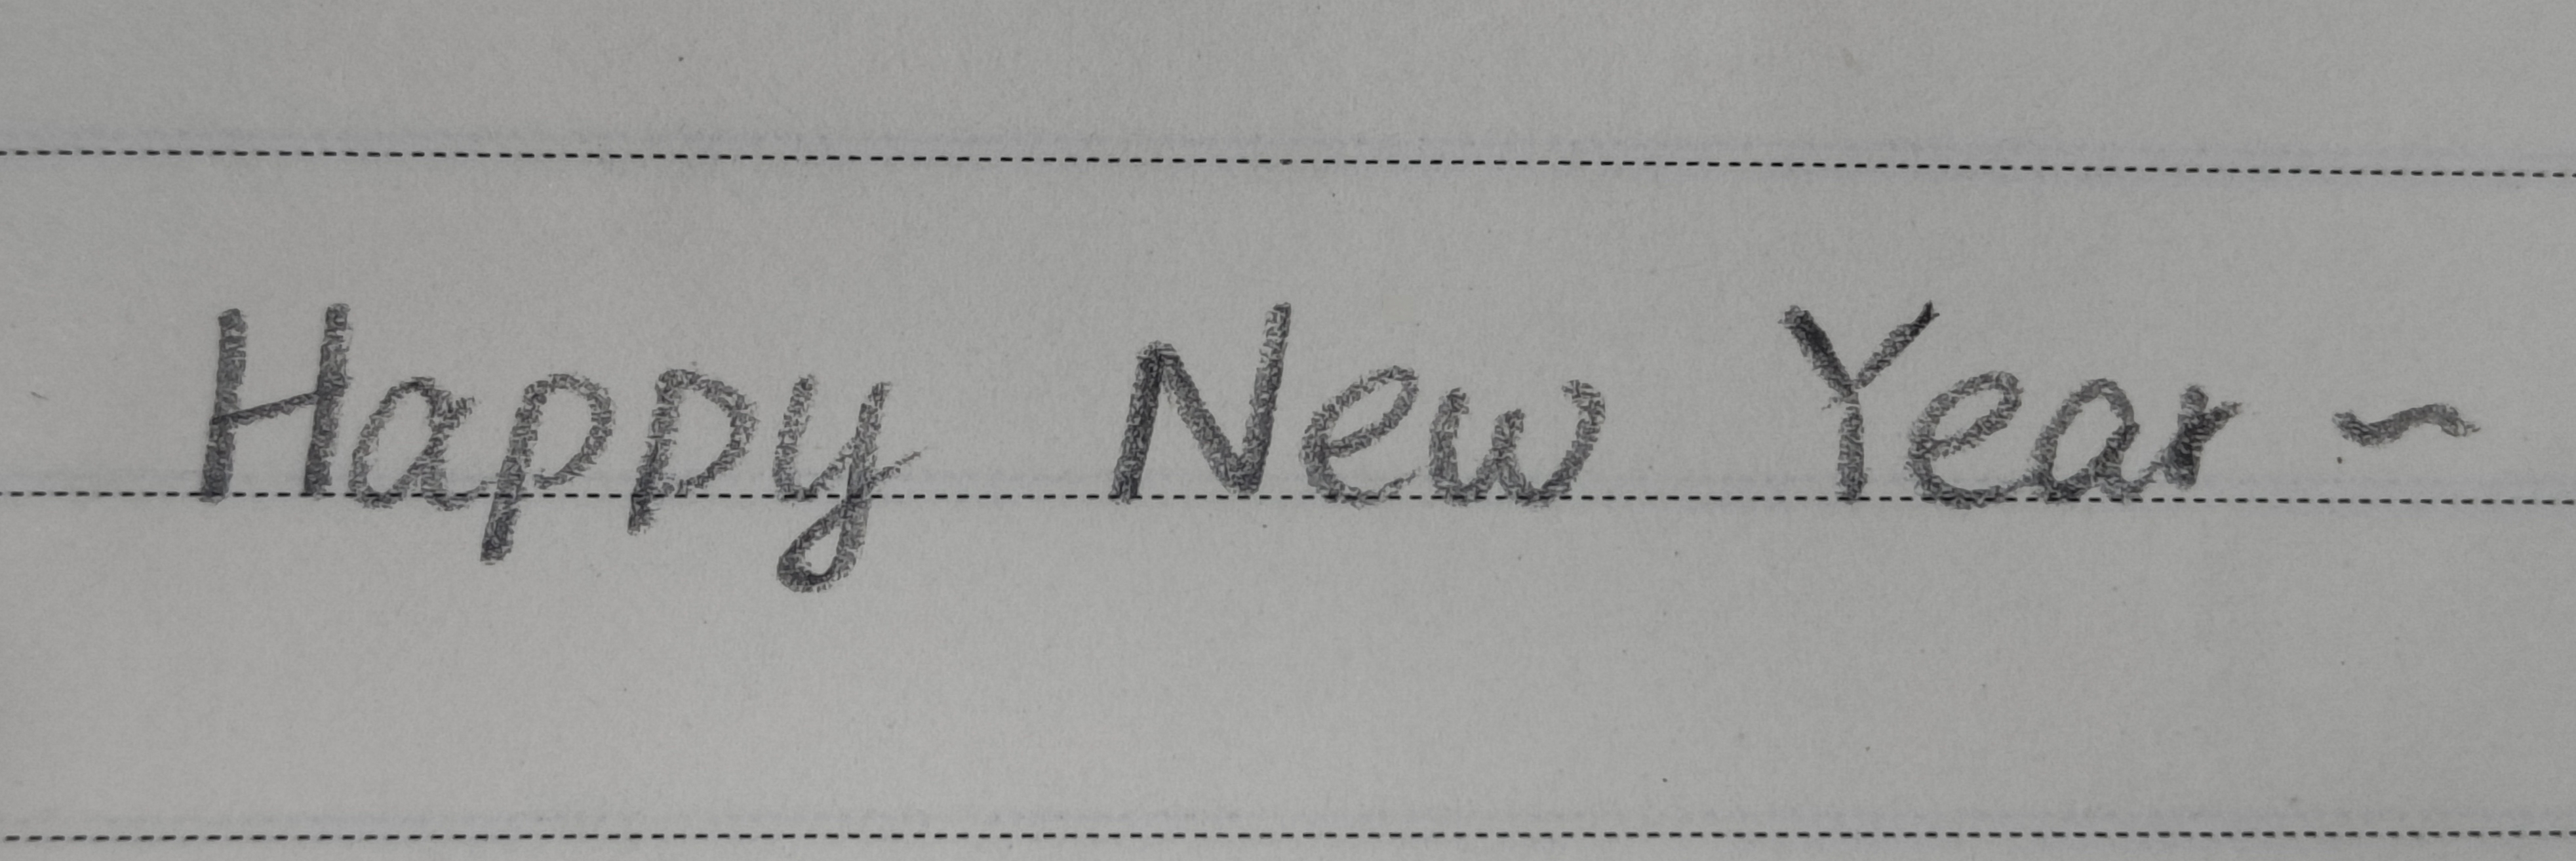 Happy New Year~